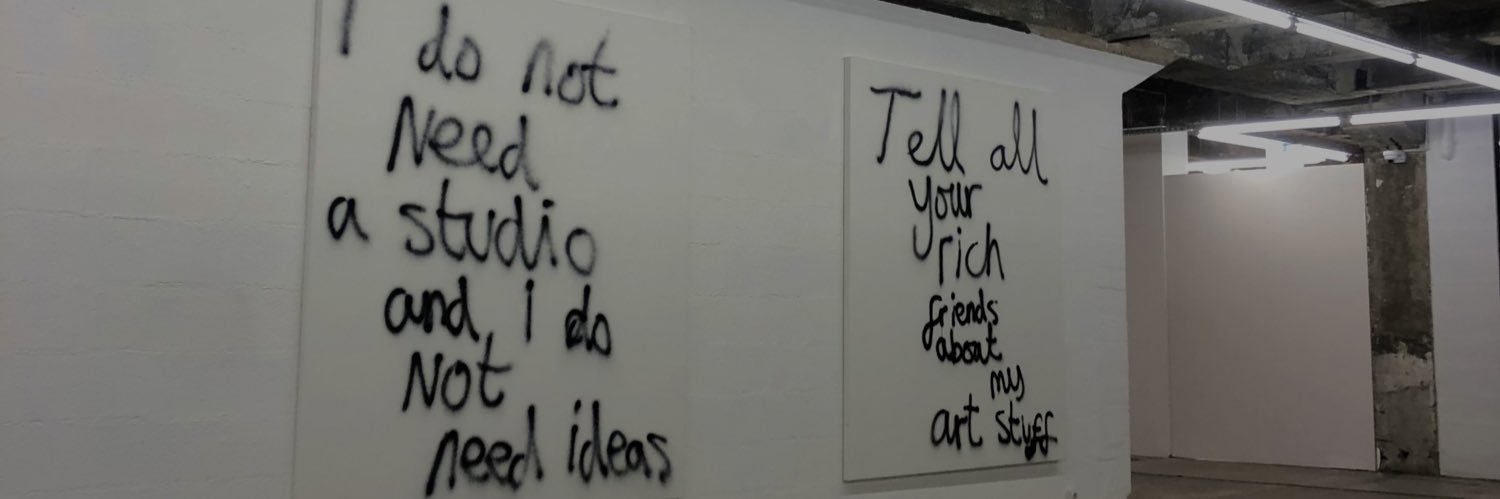 I do not
Need
a studio
and i do
Not
need ideas
Tell all
your
rich
friends
about
my
art stuff